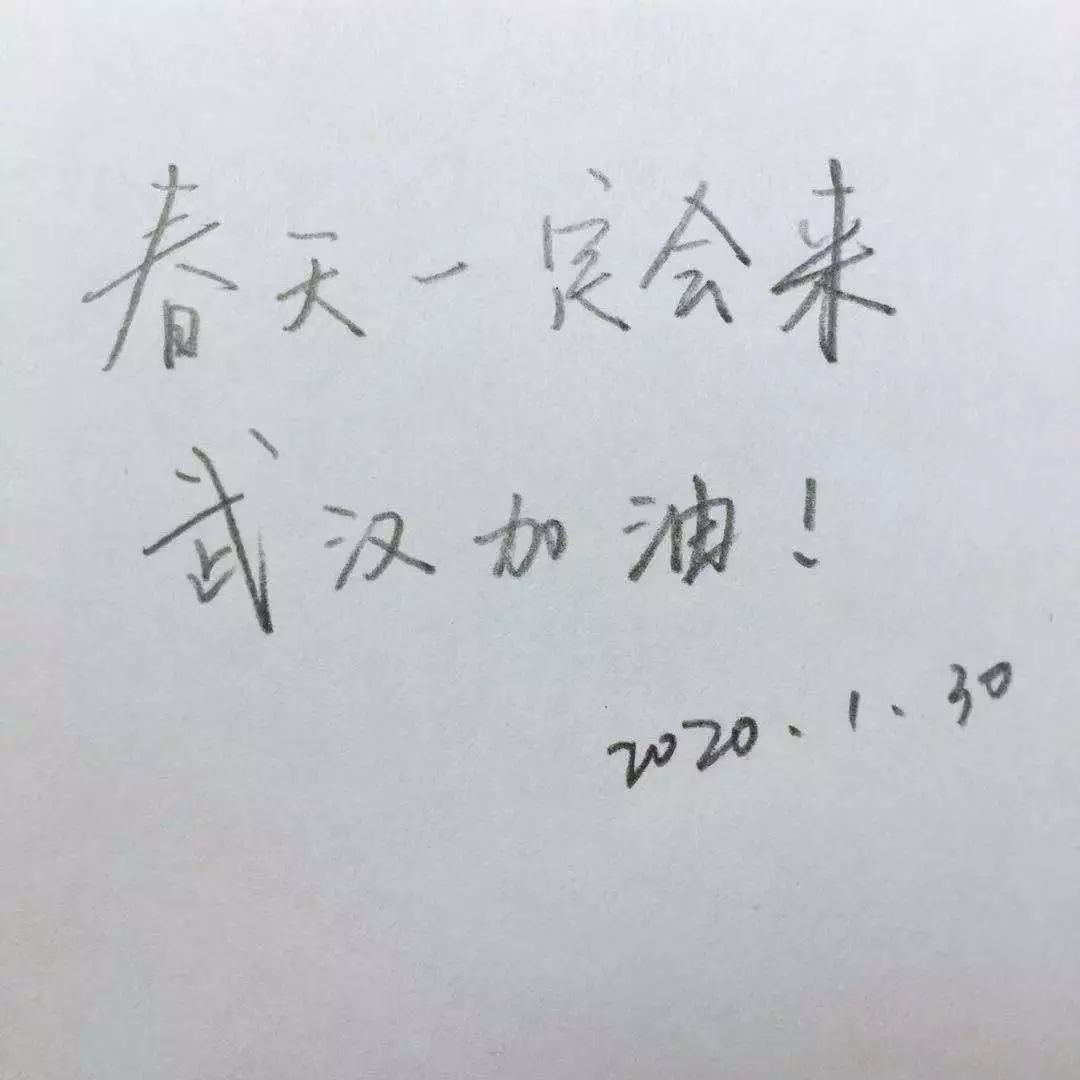 春天一定会来
武汉加油!
2020.1.30